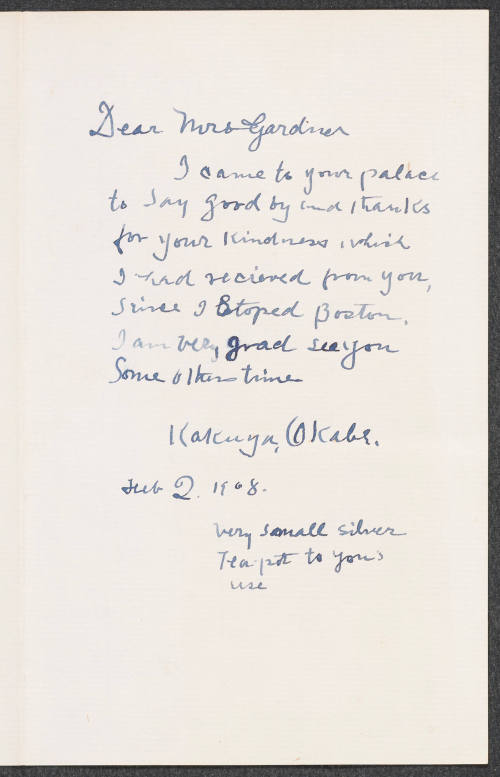 Dear Mrs Gardner
I came to your palace
to Say good by and thanks
for your Kindness which
I had recieved from you,
Since I Stoped Boston.
I am very grad see you
Some other time
Kakuya, Okabe.
Feb 2. 1908.
very small silver
Tea pot to you's
use